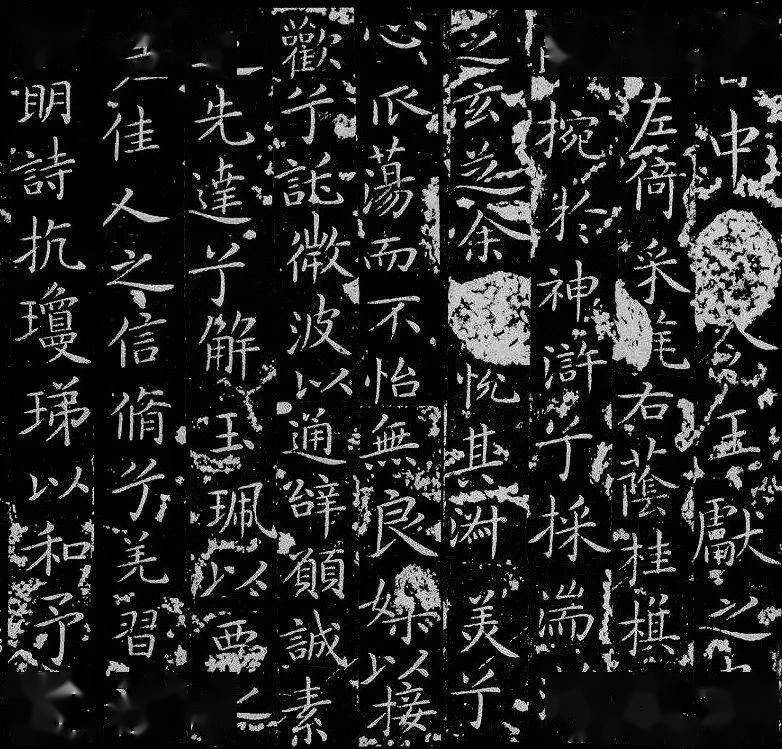 中令王獻之
左倚采旄右蔭桂旗
捥於神滸兮採湍
之玄芝余悅其淑美兮
心蕩而不怡無良媒以接
歡兮託微波以通辭願誠素
先達兮解玉珮以要之
佳人之信脩兮羌習
明詩抗瓊珶以和予